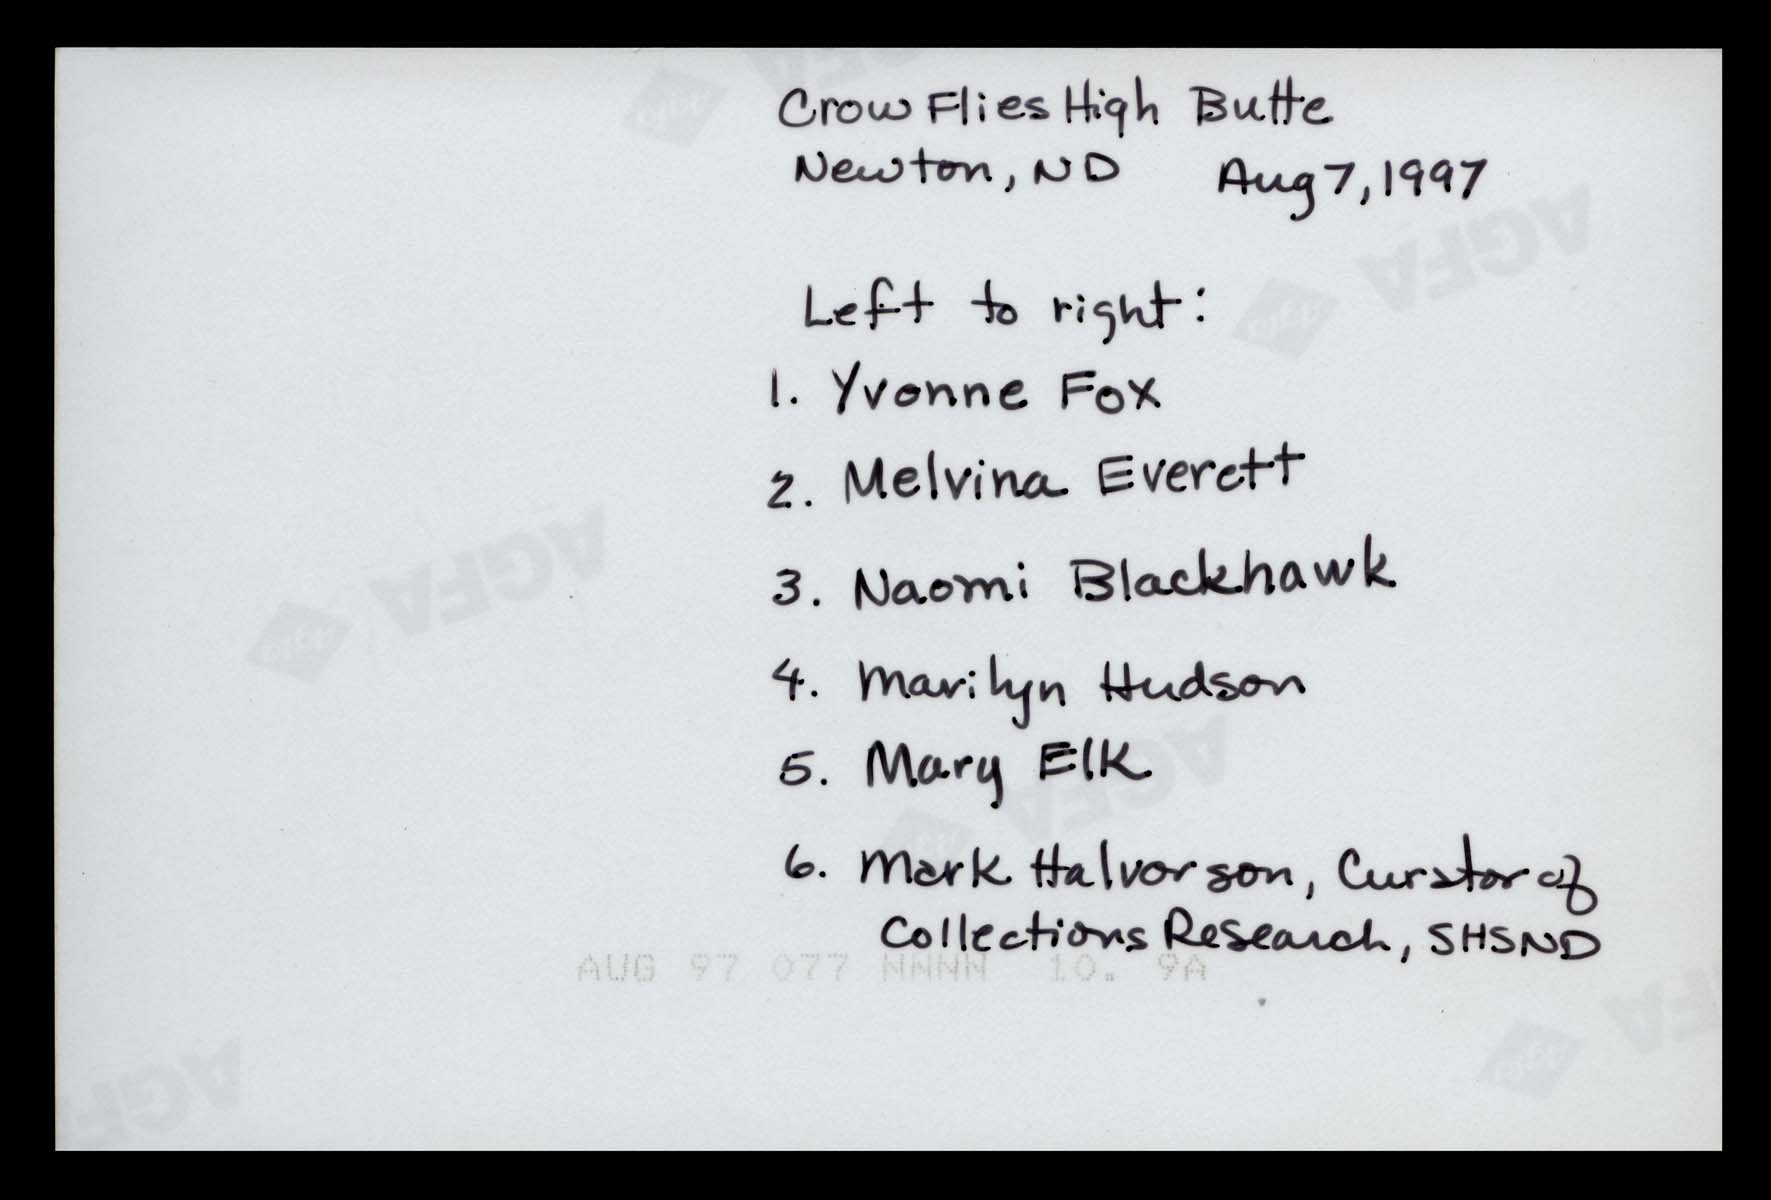 Crow Flies High Butte
Newton, ND Aug 7, 1997
Left to right:
1. Yvonne Fox
2. Melvina Everett
3. Naomi Blackhawk
4. Marilyn Hudson
5. Mary Elk
6. Mark Halvorson, Curator of
Collections Research, SHSND
AUG 97 077 NNNN 10. 9A
AGFA
AGFA
AGFA
AGFA
AGFA